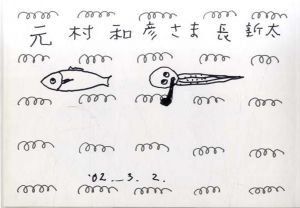 元村和彦さま 長新太
'02_3.2.